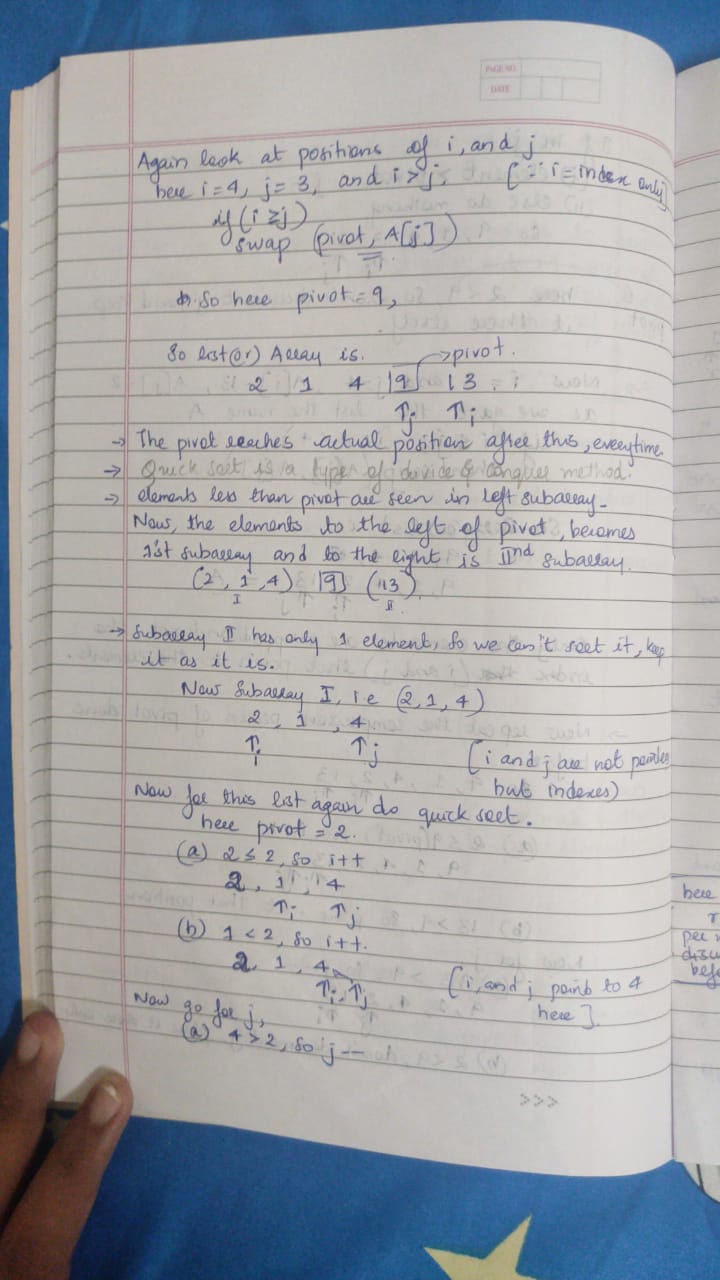 PAGE NO.
DATE
Again look at positions of i, and j
here i=4, j=3, and i>j. [∵ i=index only]
if (i≥j)
swap (pivot, A[j])
So here pivot=9,
So list (or) Array is. →pivot.
2 1 4 |9| 13
↑j ↑i
→ The pivot reaches actual position after this, everytime.
→ Quick sort is a type of divide & conquer method.
→ elements less than pivot are seen in left subarray.
Now, the elements to the left of pivot, becomes
1st subarray and to the right is IInd subarray.
(2, 1, 4) |9| (13)
I II
→ Subarray II has only 1 element, so we can't sort it, keep
it as it is.
Now Subarray I, i.e (2, 1, 4)
2, 1, 4
↑i ↑j [i and j are not pointers
but indexes)
Now for this list again do quick sort.
here pivot = 2.
(a) 2≤2, so i++
2, 1, 4
↑i ↑j
(b) 1<2, so i++.
2, 1, 4
↑i, ↑j [i, and j points to 4
here].
Now go for j,
(a) 4>2, so j--
>>>
here
per
discu
befo